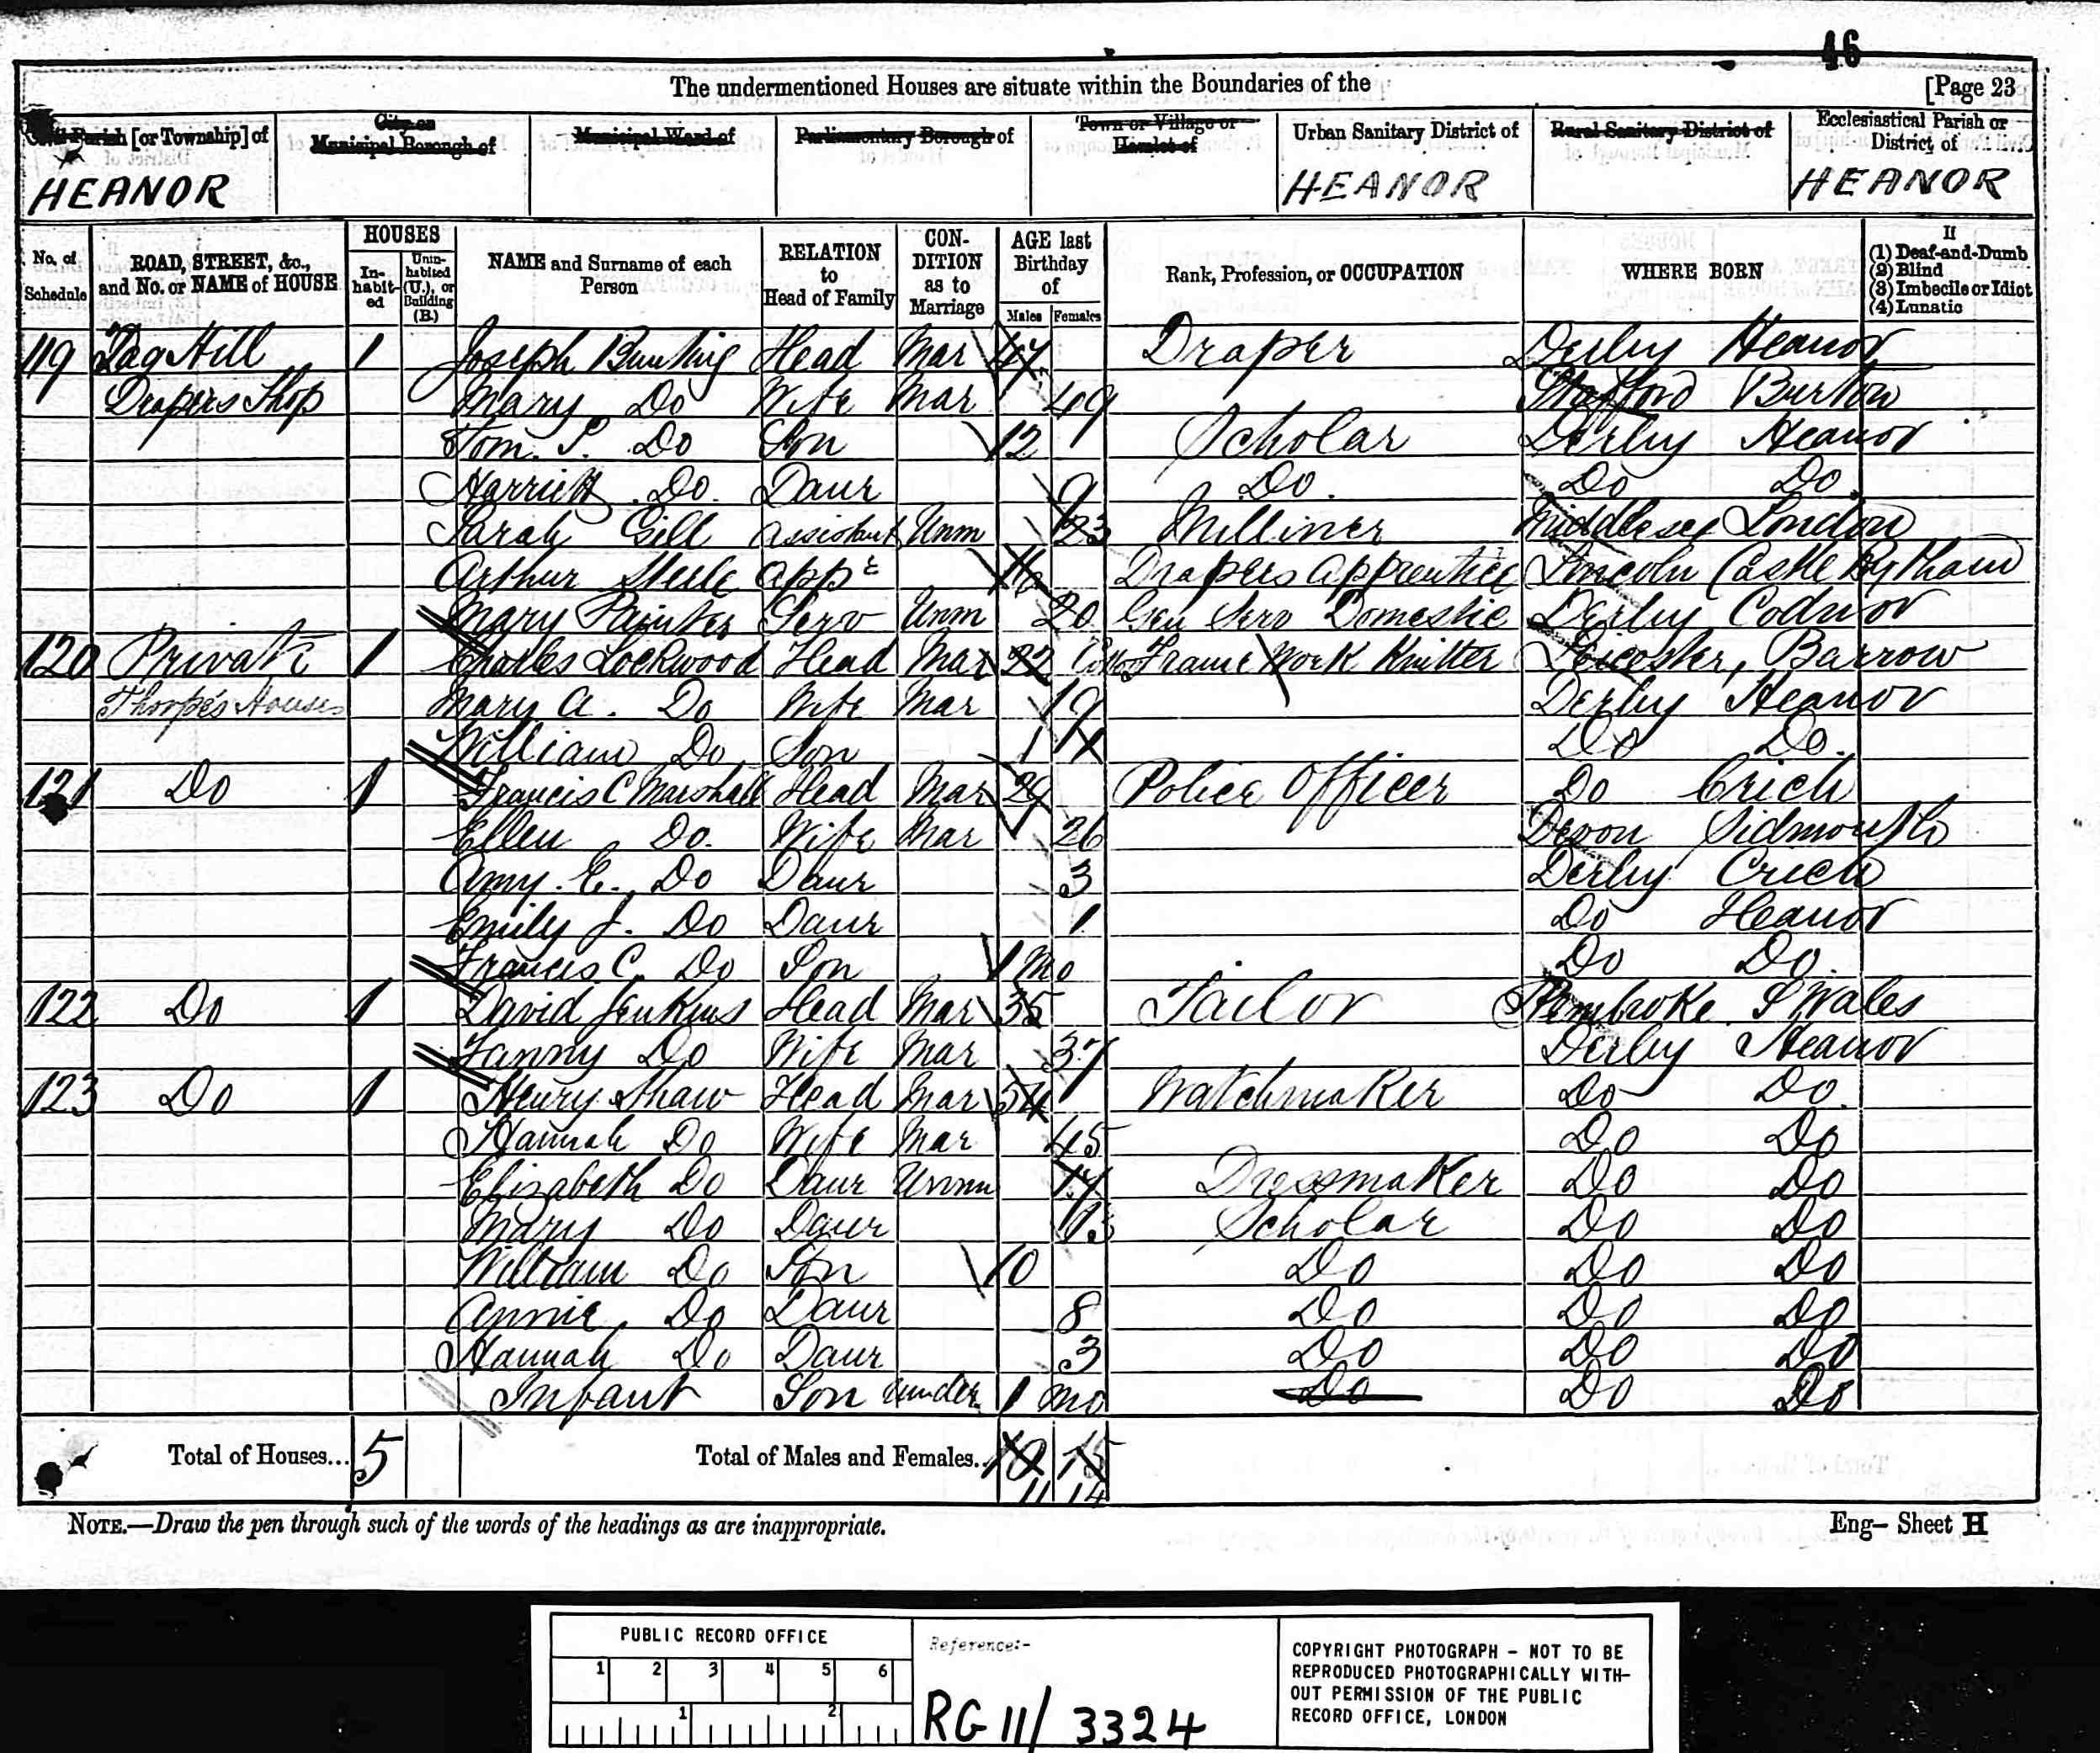 46
The undermentioned Houses are situate within the Boundaries of the [Page 23
Civil Parish [or Township] of City or Municipal Borough of Municipal Ward of Parliamentary Borough of Town or Village or Hamlet of Urban Sanitary District of Rural Sanitary District of Ecclesiastical Parish or District of
HEANOR HEANOR HEANOR
No. of Schedule ROAD, STREET, &c., and No. or NAME of HOUSE HOUSES In-habit-ed Unin-habited (U.), or Building (B.) NAME and Surname of each Person RELATION to Head of Family CON-DITION as to Marriage AGE last Birthday of Males Females Rank, Profession, or OCCUPATION WHERE BORN If (1) Deaf-and-Dumb (2) Blind (3) Imbecile or Idiot (4) Lunatic
119 Tag Hill 1 Joseph Bunting Head Mar 47 Draper Derby Heanor
Drapers Shop Mary Do Wife Mar 49 Stafford Burton
Tom. Do Son 12 Scholar Derby Heanor
Harriett Do. Daur 9 Do. Do Do.
Sarah Gill Assistant Unm 23 Milliner Middlesex London
Arthur Steele App. 16 Drapers Apprentice Lincoln Castle Bytham
Mary Painter Serv Unm 20 Gen Serv Domestic Derby Codnor
120 Private 1 Charles Lockwood Head Mar 22 Cotton Frame Work Knitter Leicester, Barrow
Thorpe's Houses Mary A. Do Wife Mar 19 Derby Heanor
William Do Son 1 Do Do.
121 Do 1 Francis C Marshall Head Mar 29 Police Officer Do Crich
Ellen Do. Wife Mar 26 Devon Sidmouth
Amy. E. Do Daur 3 Derby Crich
Emily J. Do Daur 1 Do Heanor
Francis C. Do Son 1 Mo Do Do.
122 Do 1 David Jenkins Head Mar 35 Tailor Pembroke S Wales
Fanny Do Wife Mar 37 Derby Heanor
123 Do 1 Henry Shaw Head Mar 54 Watchmaker Do Do.
Hannah Do Wife Mar 45 Do Do
Elizabeth Do Daur Unm Dressmaker Do Do
Mary Do Daur 13 Scholar Do Do
William Do Son 10 Do Do Do
Annie Do Daur 8 Do Do Do
Hannah Do Daur 3 Do Do Do
Infant Son under 1 mo Do Do Do
Total of Houses... 5 Total of Males and Females.. 10 15
11 14
NOTE.—Draw the pen through such of the words of the headings as are inappropriate. Eng— Sheet H
PUBLIC RECORD OFFICE
1 2 3 4 5 6
1 2
Reference:-
RG 11/ 3324
COPYRIGHT PHOTOGRAPH - NOT TO BE
REPRODUCED PHOTOGRAPHICALLY WITH-
OUT PERMISSION OF THE PUBLIC
RECORD OFFICE, LONDON